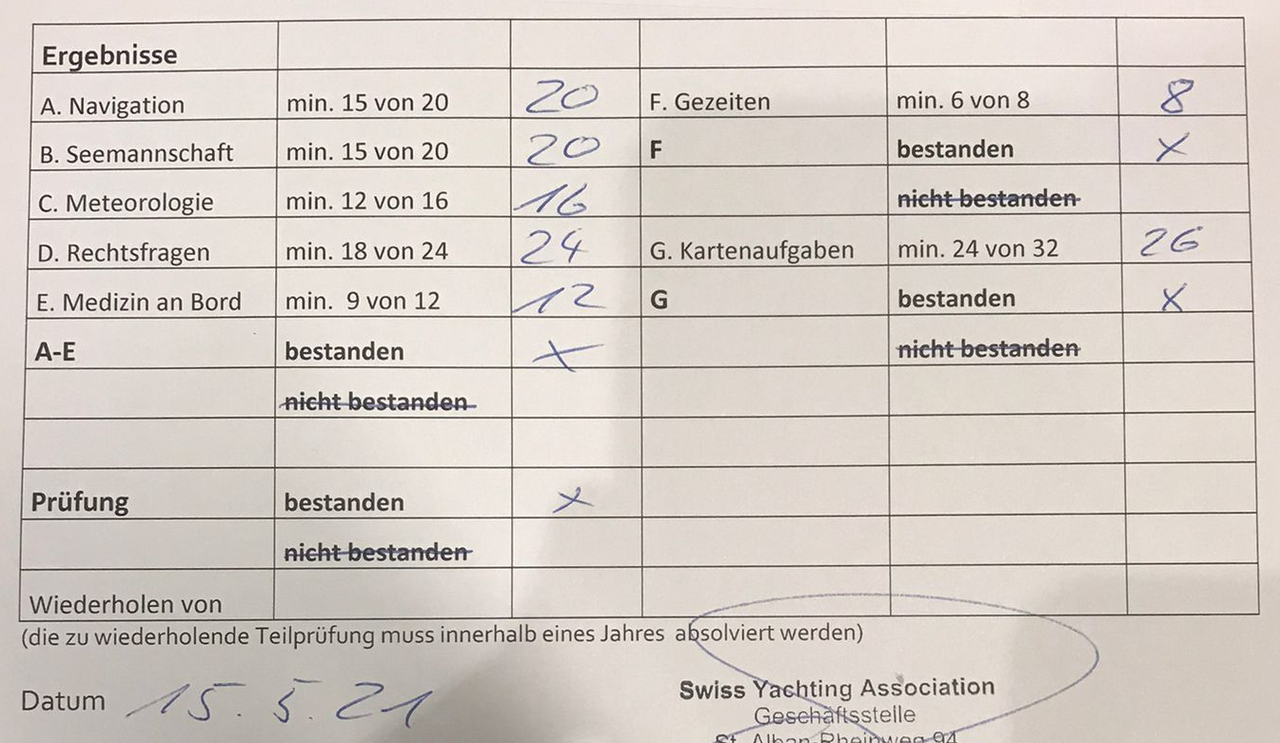 Ergebnisse
A. Navigation min. 15 von 20 20 F. Gezeiten min. 6 von 8 8
B. Seemannschaft min. 15 von 20 20 F bestanden x
C. Meteorologie min. 12 von 16 16 nicht bestanden
D. Rechtsfragen min. 18 von 24 24 G. Kartenaufgaben min. 24 von 32 26
E. Medizin an Bord min. 9 von 12 12 G bestanden x
A-E bestanden x nicht bestanden
nicht bestanden
Prüfung bestanden x
nicht bestanden
Wiederholen von
(die zu wiederholende Teilprüfung muss innerhalb eines Jahres absolviert werden)
Datum 15.5.21
Swiss Yachting Association
Geschäftsstelle
St. Alban-Rheinweg 94